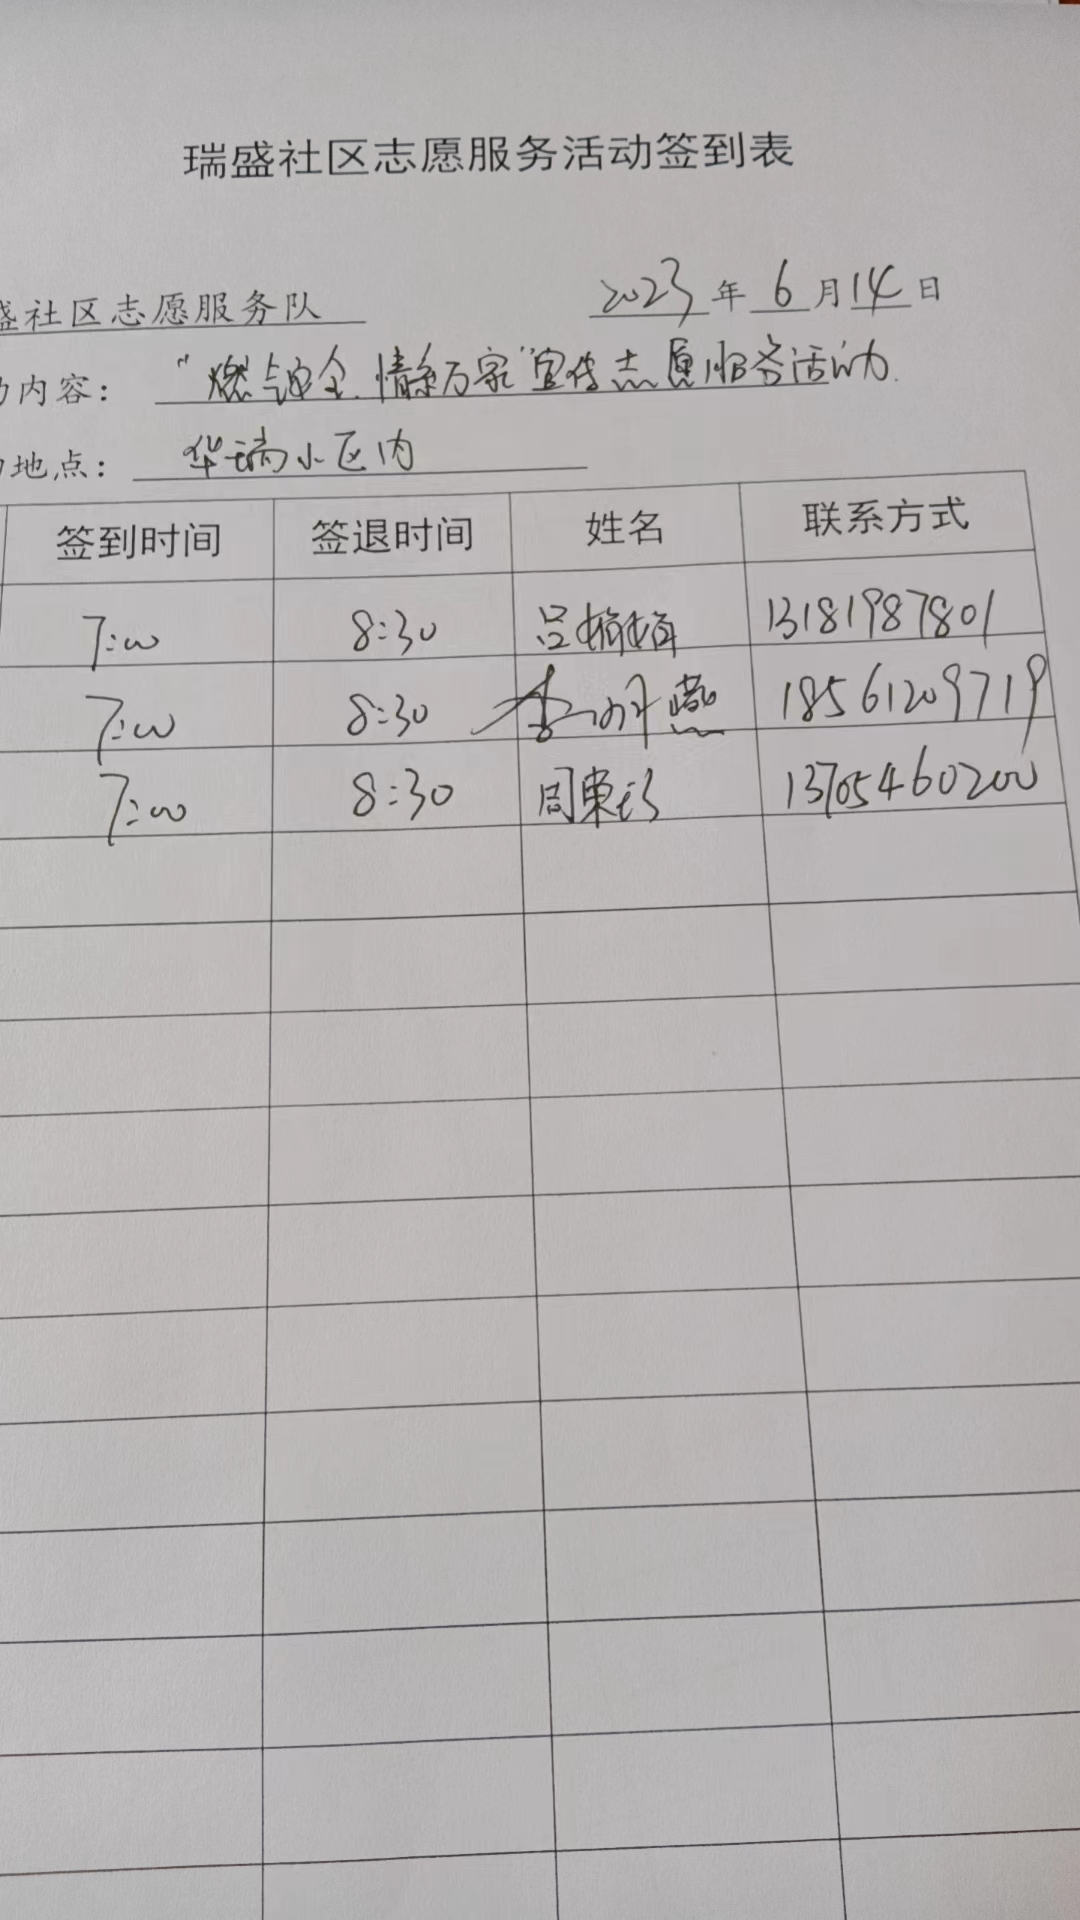 瑞盛社区志愿服务活动签到表
盛社区志愿服务队 2023年6月14日
动内容： “燃气安全.情系万家”宣传志愿服务活动.
地点： 华瑞小区内
签到时间 签退时间 姓名 联系方式
7:00 8:30 吕楠楠 13181987801
7:00 8:30 李丹燕 18561209719
7:00 8:30 周东 13705460200